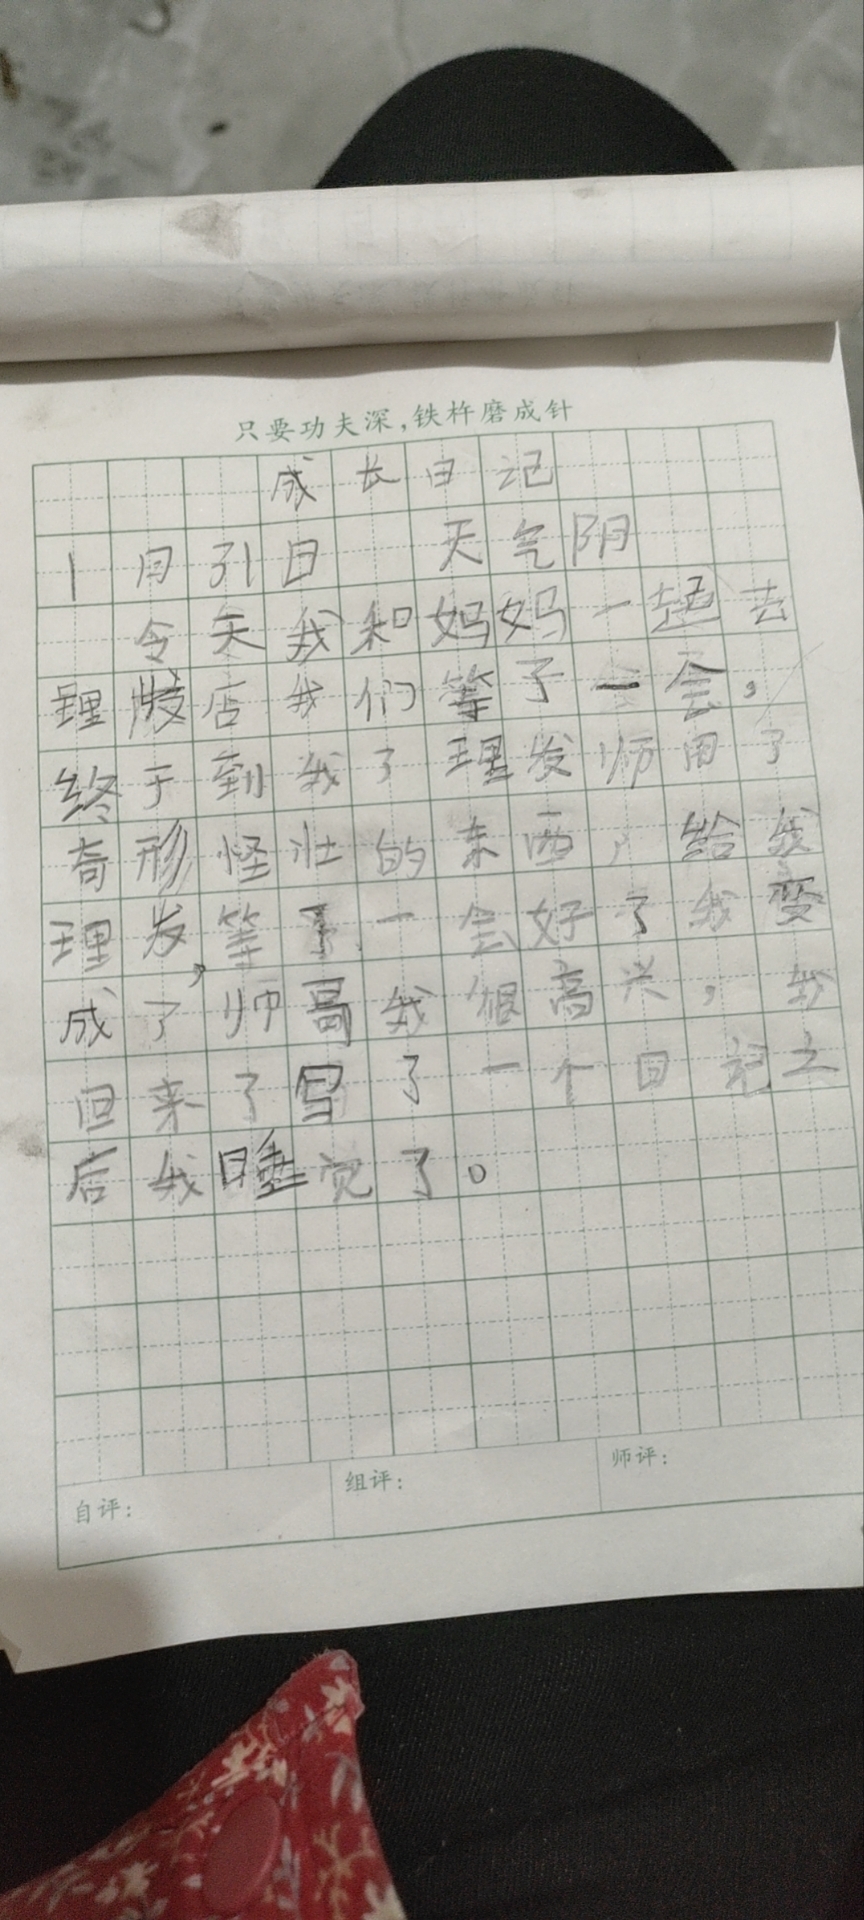 只要功夫深,铁杵磨成针
成长日记
1月31日 天气阴
今天我和妈妈一起去
理发店我们等了一会,
终于到我了理发师用了
奇形怪壮的东西,给我
理发,等了一会好了我变
成了帅哥我很高兴,我
回来了写了一个日记之
后我睡觉了。
自评:
组评:
师评: